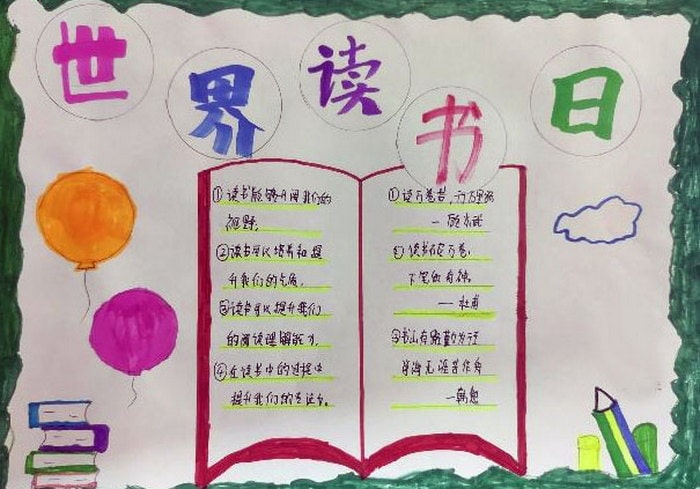 世界读书日
①读书能够开阔我们的
视野。
②读书可以培养和提
升我们的气质。
③读书可以提升我们
的阅读理解能力。
④在读书中的过程中
提升我们的专注力。
①读万卷书，行万里路
—顾炎武
②读书破万卷，
下笔如有神。
—杜甫
③书山有路勤为径
学海无涯苦作舟
—韩愈